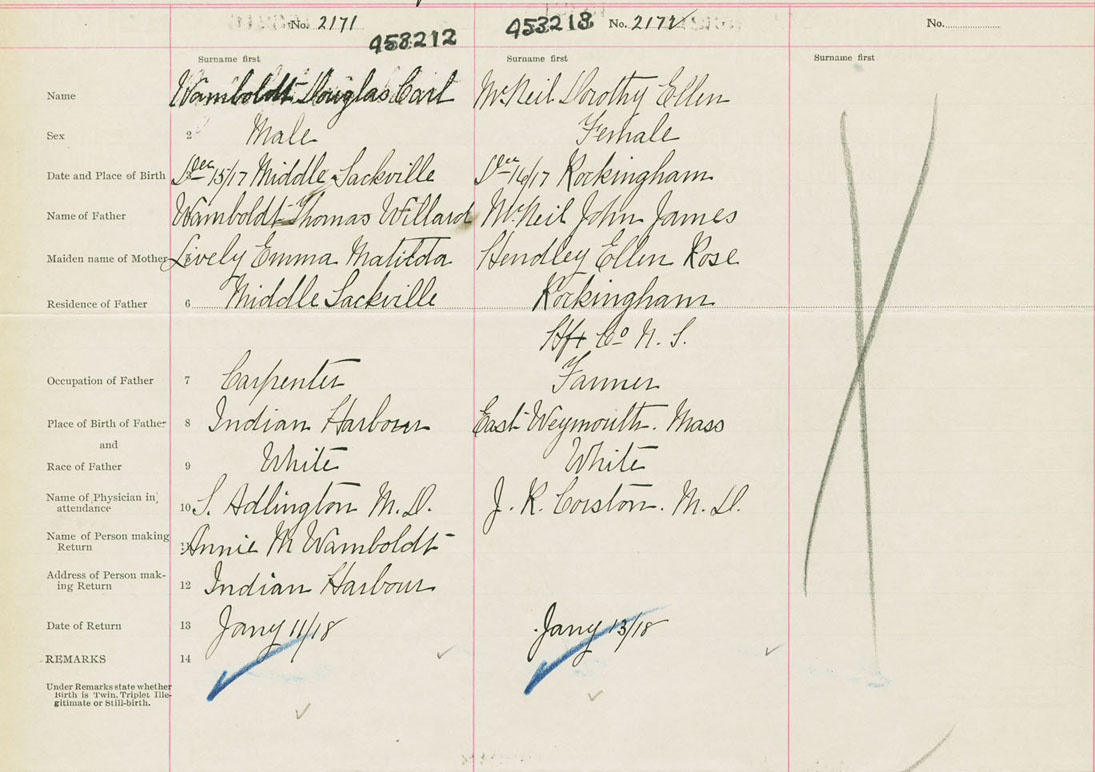 No. 2171
953212
953213
No. 2172
No.
Surname first
Surname first
Surname first
Name
Wamboldt Douglas Carl
McNeil Dorothy Ellen
Sex
2
Male
Female
Date and Place of Birth
Dec 15/17 Middle Sackville
Dec 16/17 Rockingham
Name of Father
Wamboldt Thomas Willard
McNeil John James
Maiden name of Mother
Lively Emma Matilda
Hendley Ellen Rose
Residence of Father
6
Middle Sackville
Rockingham
Hfx Co N. S.
Occupation of Father
7
Carpenter
Farmer
Place of Birth of Father
8
Indian Harbour
East Weymouth. Mass
and
Race of Father
9
White
White
Name of Physician in
attendance
10
S. Adlington M. D.
J. R. Corston. M. D.
Name of Person making
Return
11
Annie M Wamboldt
Address of Person mak-
ing Return
12
Indian Harbour
Date of Return
13
Jany 11/18
Jany 13/18
REMARKS
14
Under Remarks state whether
Birth is Twin, Triplet Ille-
gitimate or Still-birth.